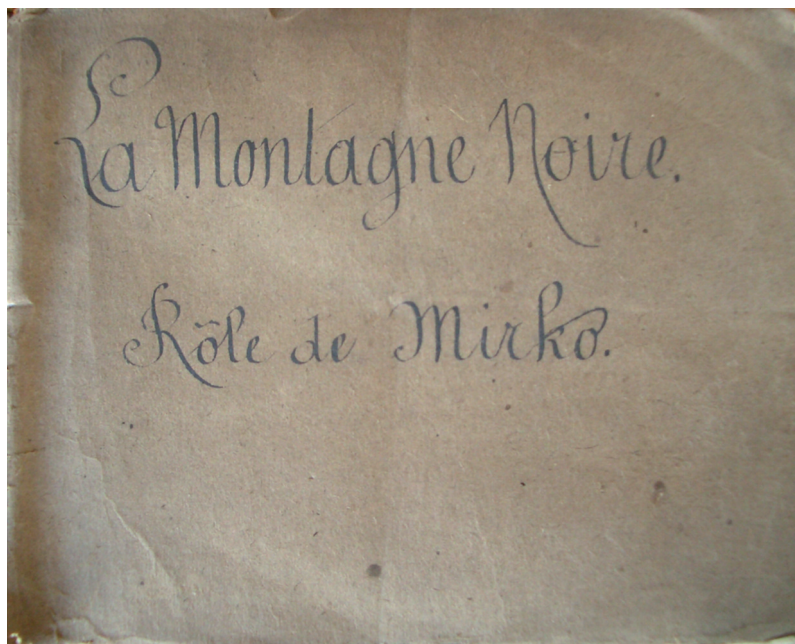 La Montagne Noire.
Rôle de Mirko.